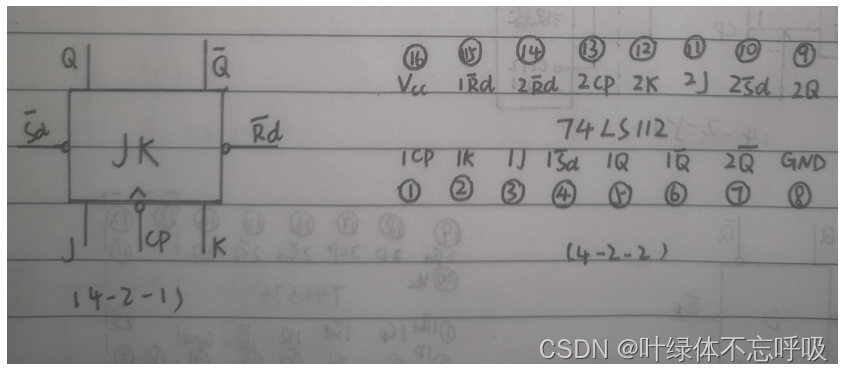 Q Q̅
S̅d JK R̅d
J CP K
(4-2-1)
⑯ ⑮ ⑭ ⑬ ⑫ ⑪ ⑩ ⑨
Vcc 1R̅d 2R̅d 2CP 2K 2J 2S̅d 2Q
74LS112
1CP 1K 1J 1S̅d 1Q 1Q̅ 2Q̅ GND
① ② ③ ④ ⑤ ⑥ ⑦ ⑧
(4-2-2)
CSDN @叶绿体不忘呼吸